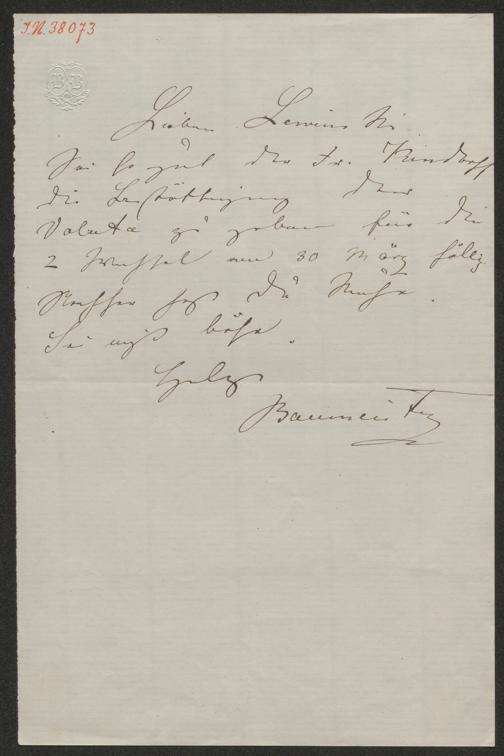 I.N. 38073
BB
Lieber Lewinski
Sei so gut der Fr.
die Bestättigung der
Valuta zu geben für die
2 Wechsel am 30 März fällig.
Du Ruhe.
Sei nicht böse.
Baumeister